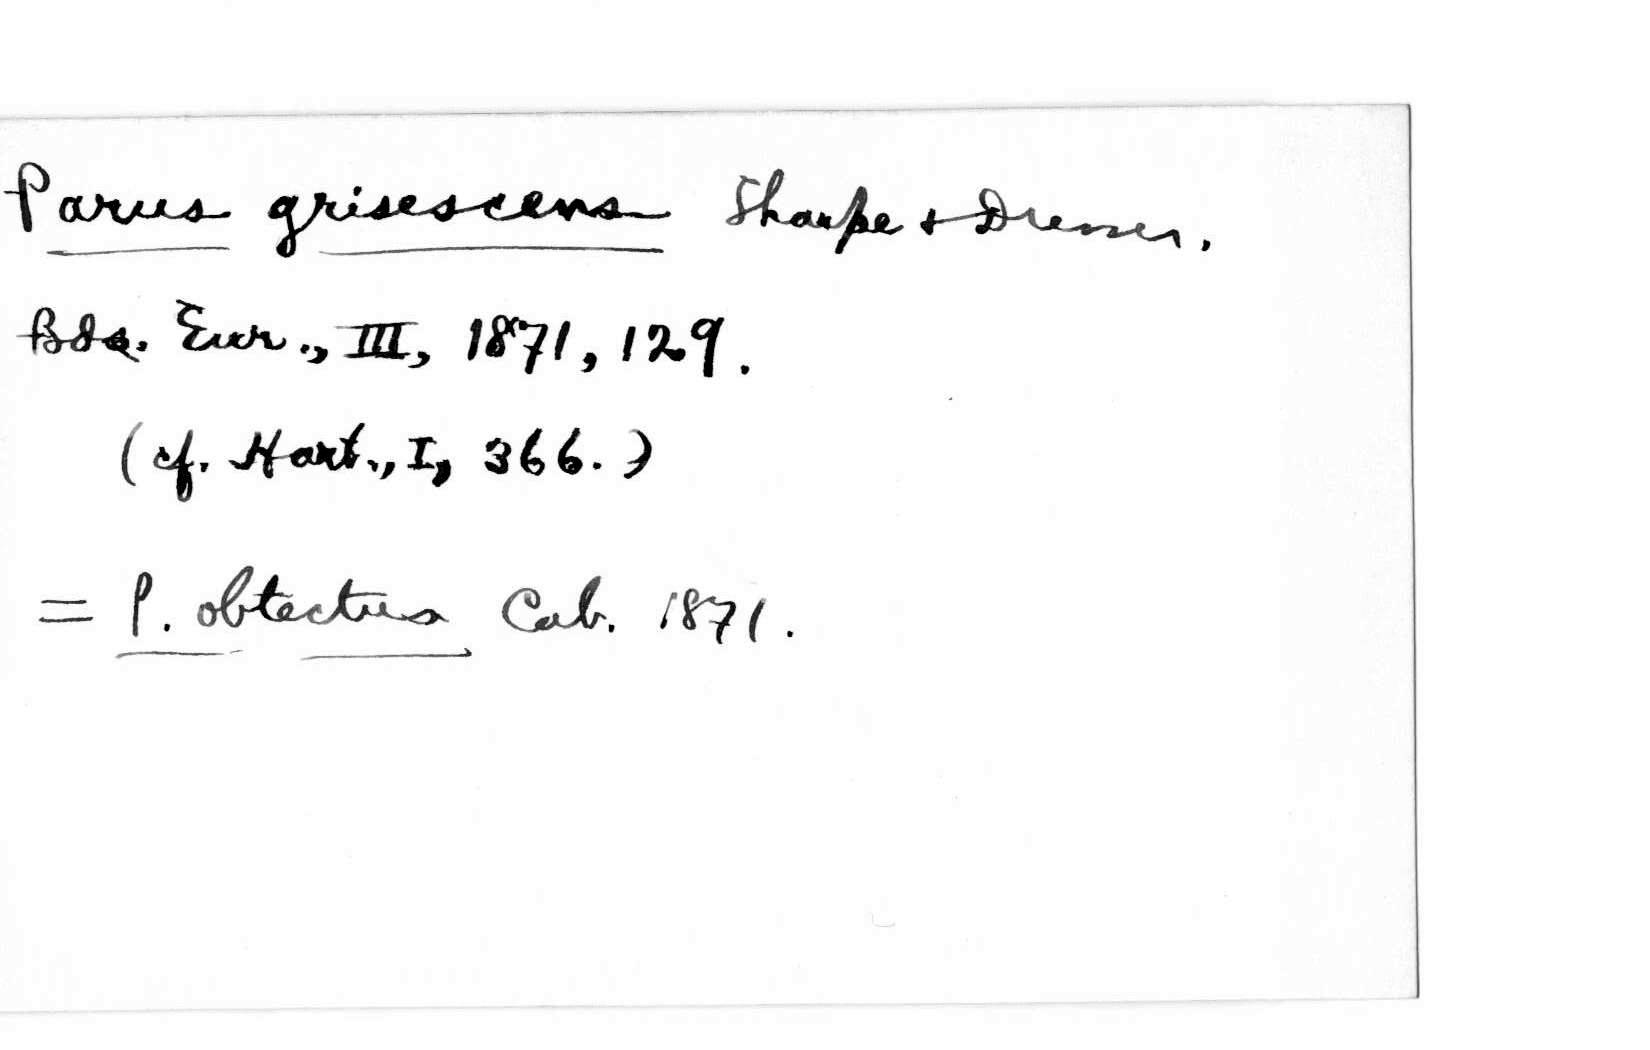 Parus grisescens Sharpe + Dresser.
Bds. Eur., III, 1871, 129.
(cf. Hart., I, 366.)
= P. obtectus Cab. 1871.